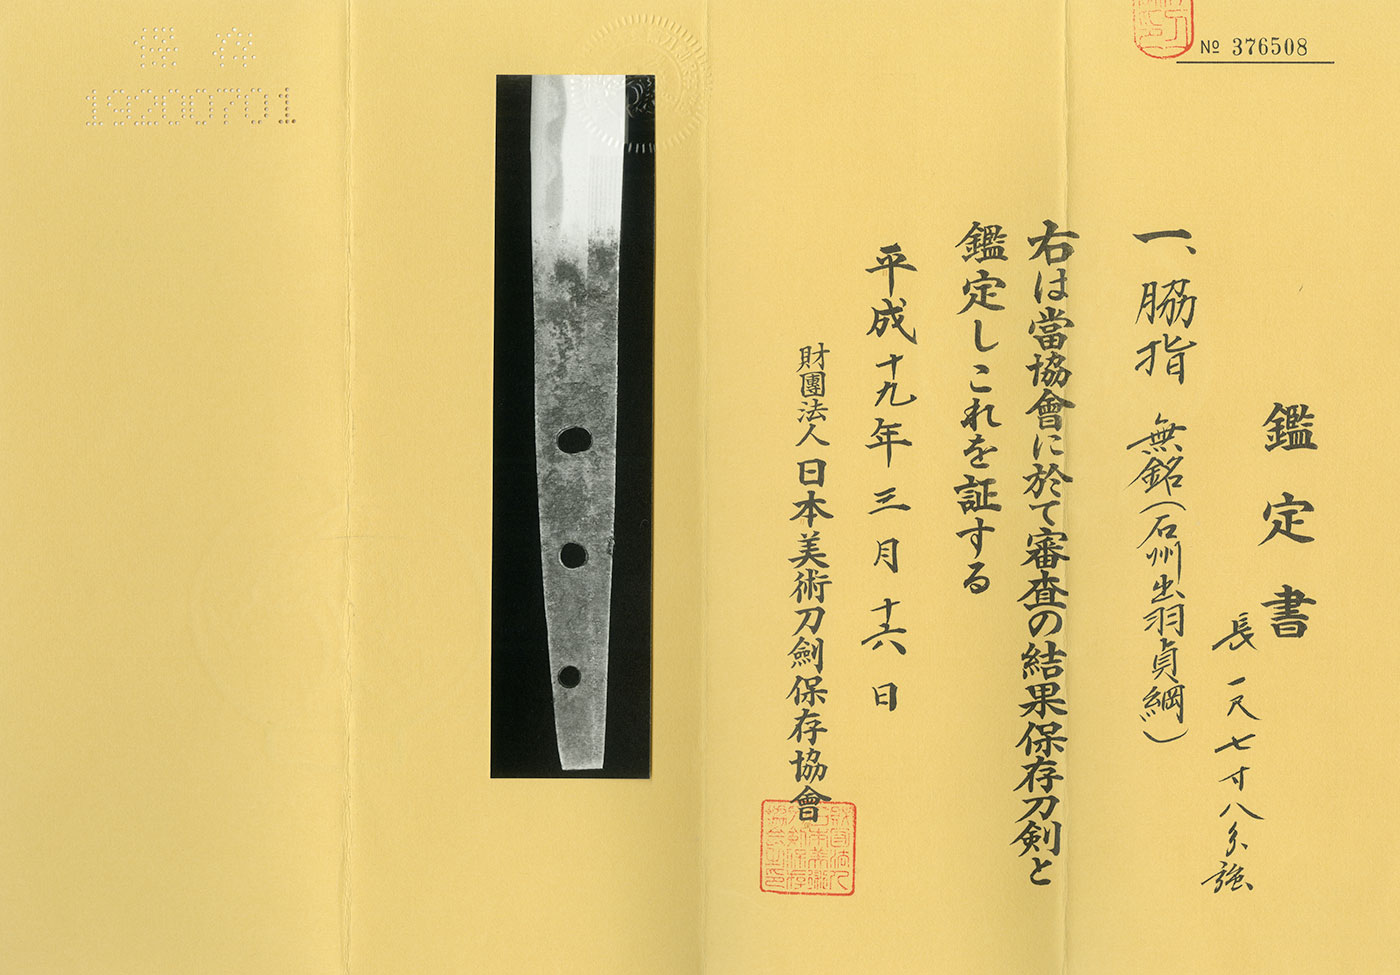 № 376508
鑑定書
一、脇指 無銘(石州出羽貞綱)
長一尺七寸八分強
右は當協會に於て審査の結果保存刀剣と
鑑定しこれを証する
平成十九年三月十六日
財團法人日本美術刀劍保存協會
保存
19200701